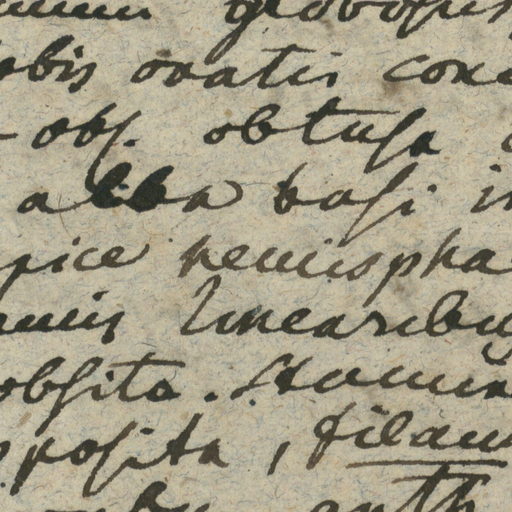 globosis
obis ovatis conc
obs. obtusa
alba basi in
pice hemispha
amis linearibus
obsita. Stamin
pposita, filam
anth